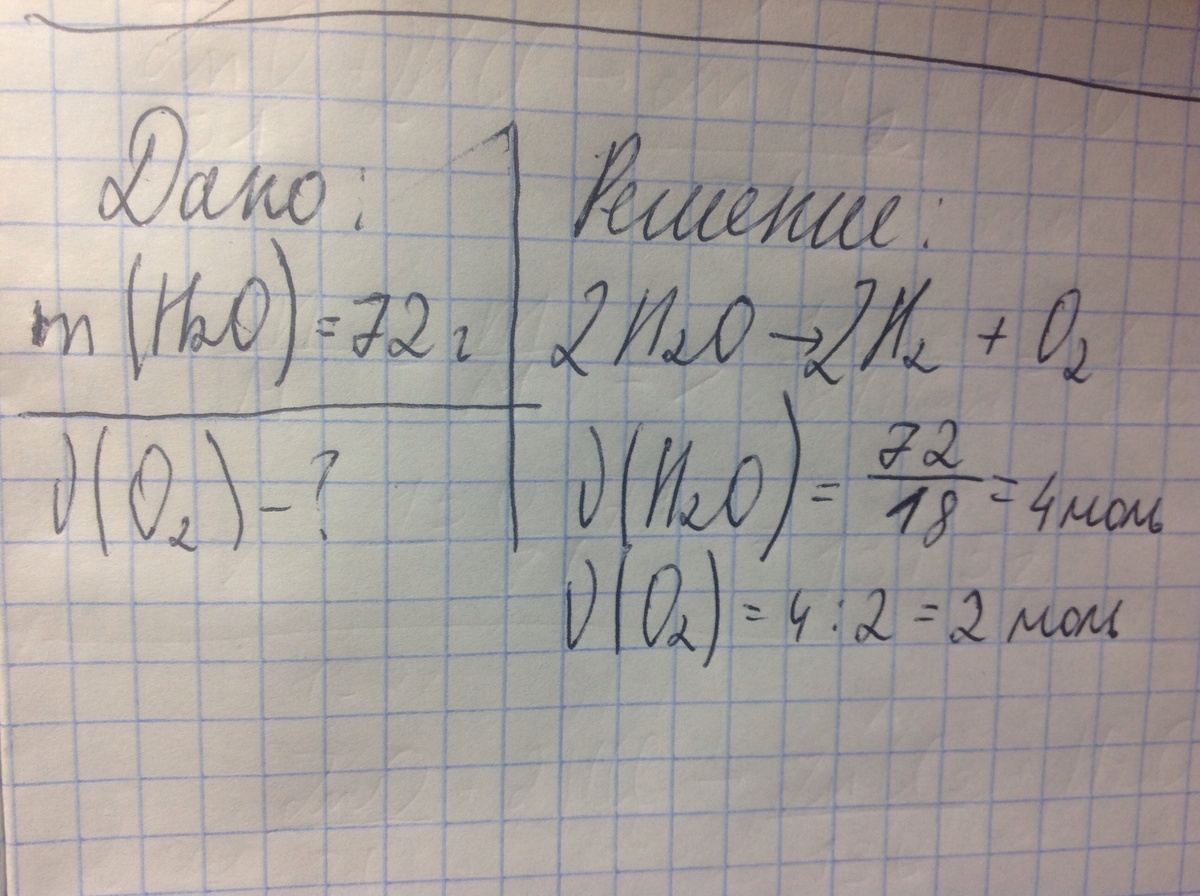 Дано:
m (H₂O) = 72 г
ν(O₂) - ?
Решение:
2H₂O → 2H₂ + O₂
ν(H₂O) = 72/18 = 4 моль
ν(O₂) = 4 : 2 = 2 моль